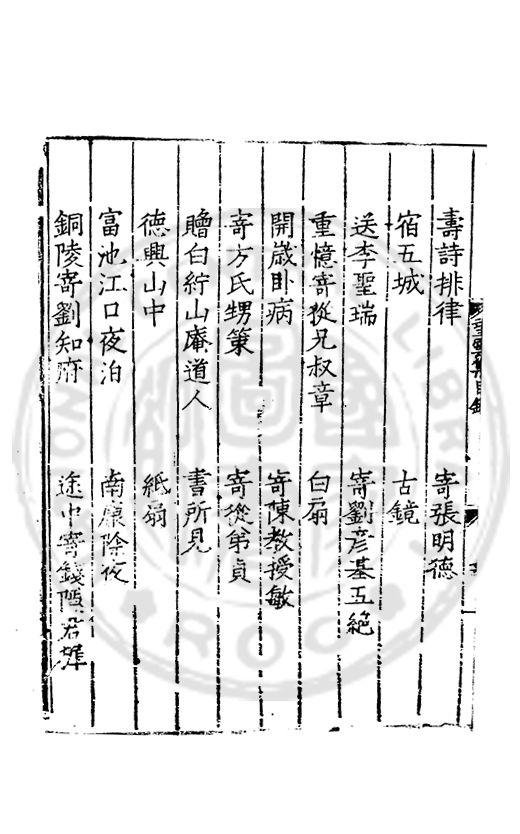 壽詩排律　寄張明德
宿五城　古鏡
送李聖瑞　寄劉彦基五絶
重憶寄從兄叔章　白扇
開歳卧病　寄陳教授敏
寄方氏甥䇿　寄從弟貞
贈白紵山庵道人　書所見
德興山中　紙扇
富池江口夜泊　南康除夜
銅陵寄劉知府　途中寄錢 君